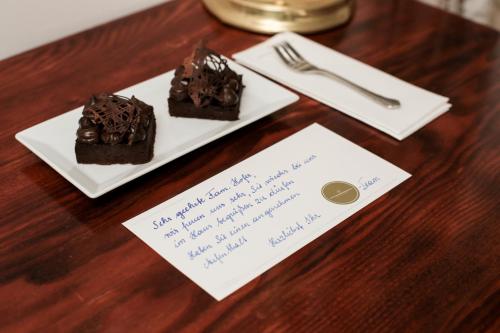 Sehr geehrte Fam. Hofer,
wir freuen uns sehr, Sie wieder bei uns
im Haus begrüßen zu dürfen
Haben Sie einen angenehmen
Aufenthalt Herzlichst Ihr Team